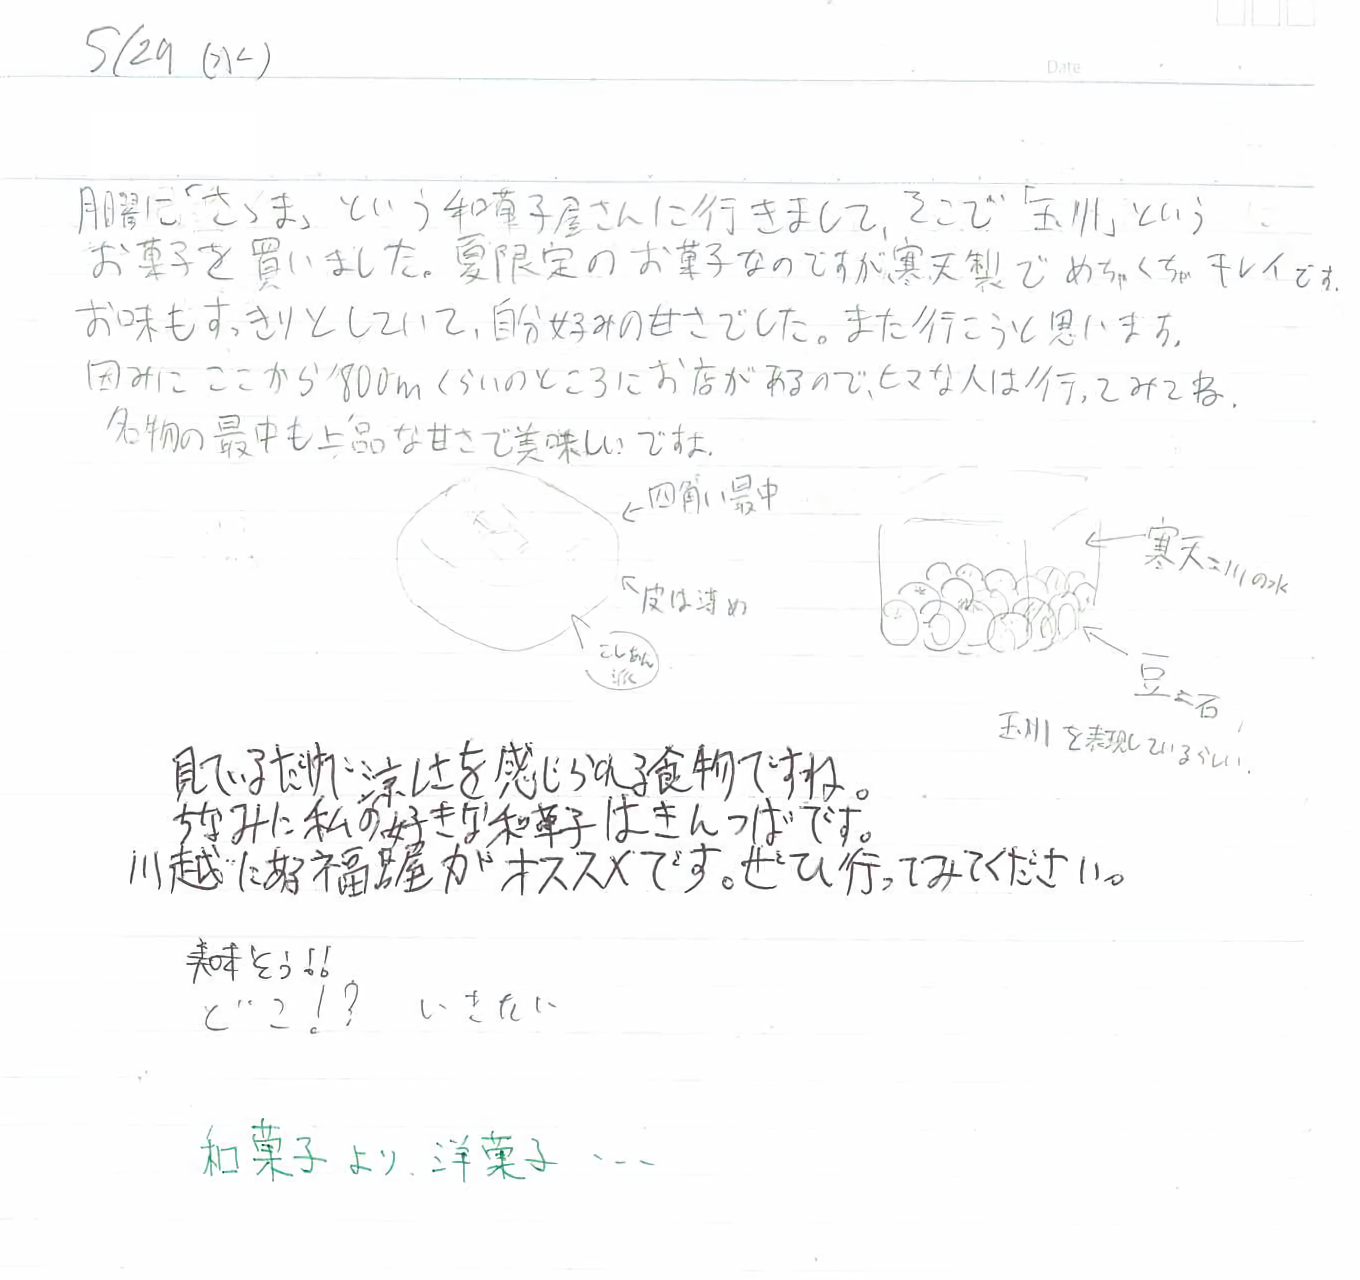 5/29 (水)
Date
月曜に「さゝま」という和菓子屋さんに行きまして、そこで「玉川」という
お菓子を買いました。夏限定のお菓子なのですが寒天製でめちゃくちゃキレイです。
お味もすっきりとしていて、自分好みの甘さでした。また行こうと思います。
因みにここから800mくらいのところにお店があるので、ヒマな人は行ってみてね。
名物の最中も上品な甘さで美味しいですよ。
←四角い最中
寒天=川の水
皮は薄め
こしあん
派
豆=石
玉川を表現しているらしい。
見ているだけで涼しさを感じられる食物ですね。
ちなみに私の好きな和菓子はきんつばです。
川越にある福呂屋がオススメです。ぜひ行ってみてください。
美味そう!!
どこ!? いきたい
和菓子より、洋菓子…